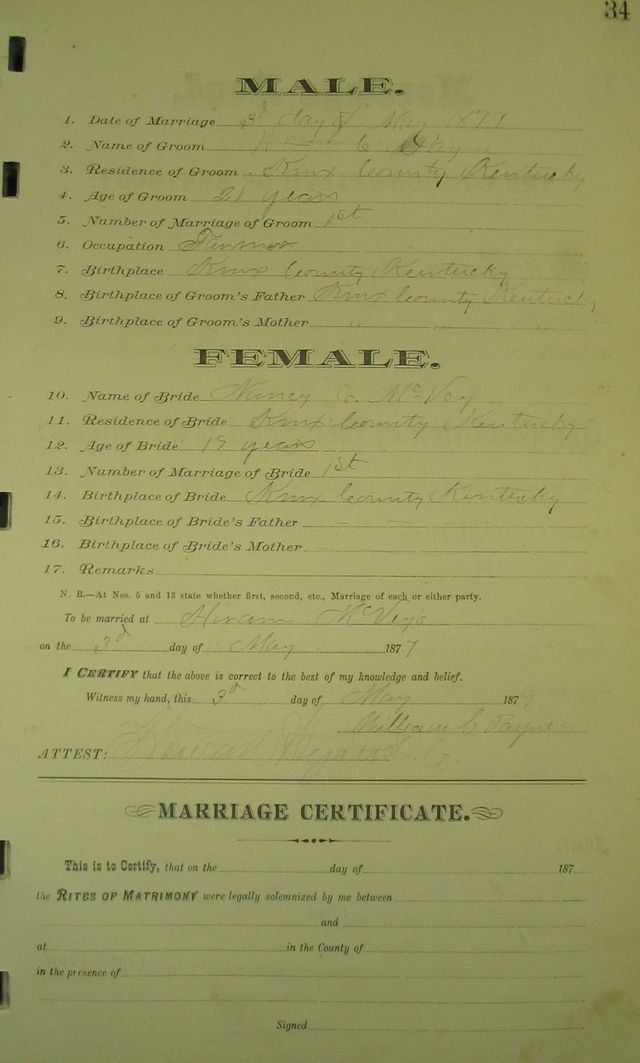 34
MALE.
1. Date of Marriage 3d day of May 1877
2. Name of Groom C. Payne
3. Residence of Groom Knox County Kentucky
4. Age of Groom 21 years
5. Number of Marriage of Groom 1st
6. Occupation Farmer
7. Birthplace Knox County Kentucky
8. Birthplace of Groom's Father Knox County Kentucky
9. Birthplace of Groom's Mother " " "
FEMALE.
10. Name of Bride Nancy C. McVey
11. Residence of Bride Knox County Kentucky
12. Age of Bride years
13. Number of Marriage of Bride 1st
14. Birthplace of Bride Knox County Kentucky
15. Birthplace of Bride's Father
16. Birthplace of Bride's Mother
17. Remarks
N. B.—At Nos. 5 and 13 state whether first, second, etc., Marriage of each or either party.
To be married at Hiram McVey's
on the 3d day of May 1877
I CERTIFY that the above is correct to the best of my knowledge and belief.
Witness my hand, this 3d day of May 1877
William C. Payne
ATTEST:
MARRIAGE CERTIFICATE.
This is to Certify, that on the day of 187
the RITES OF MATRIMONY were legally solemnized by me between
and
at in the County of
in the presence of
Signed